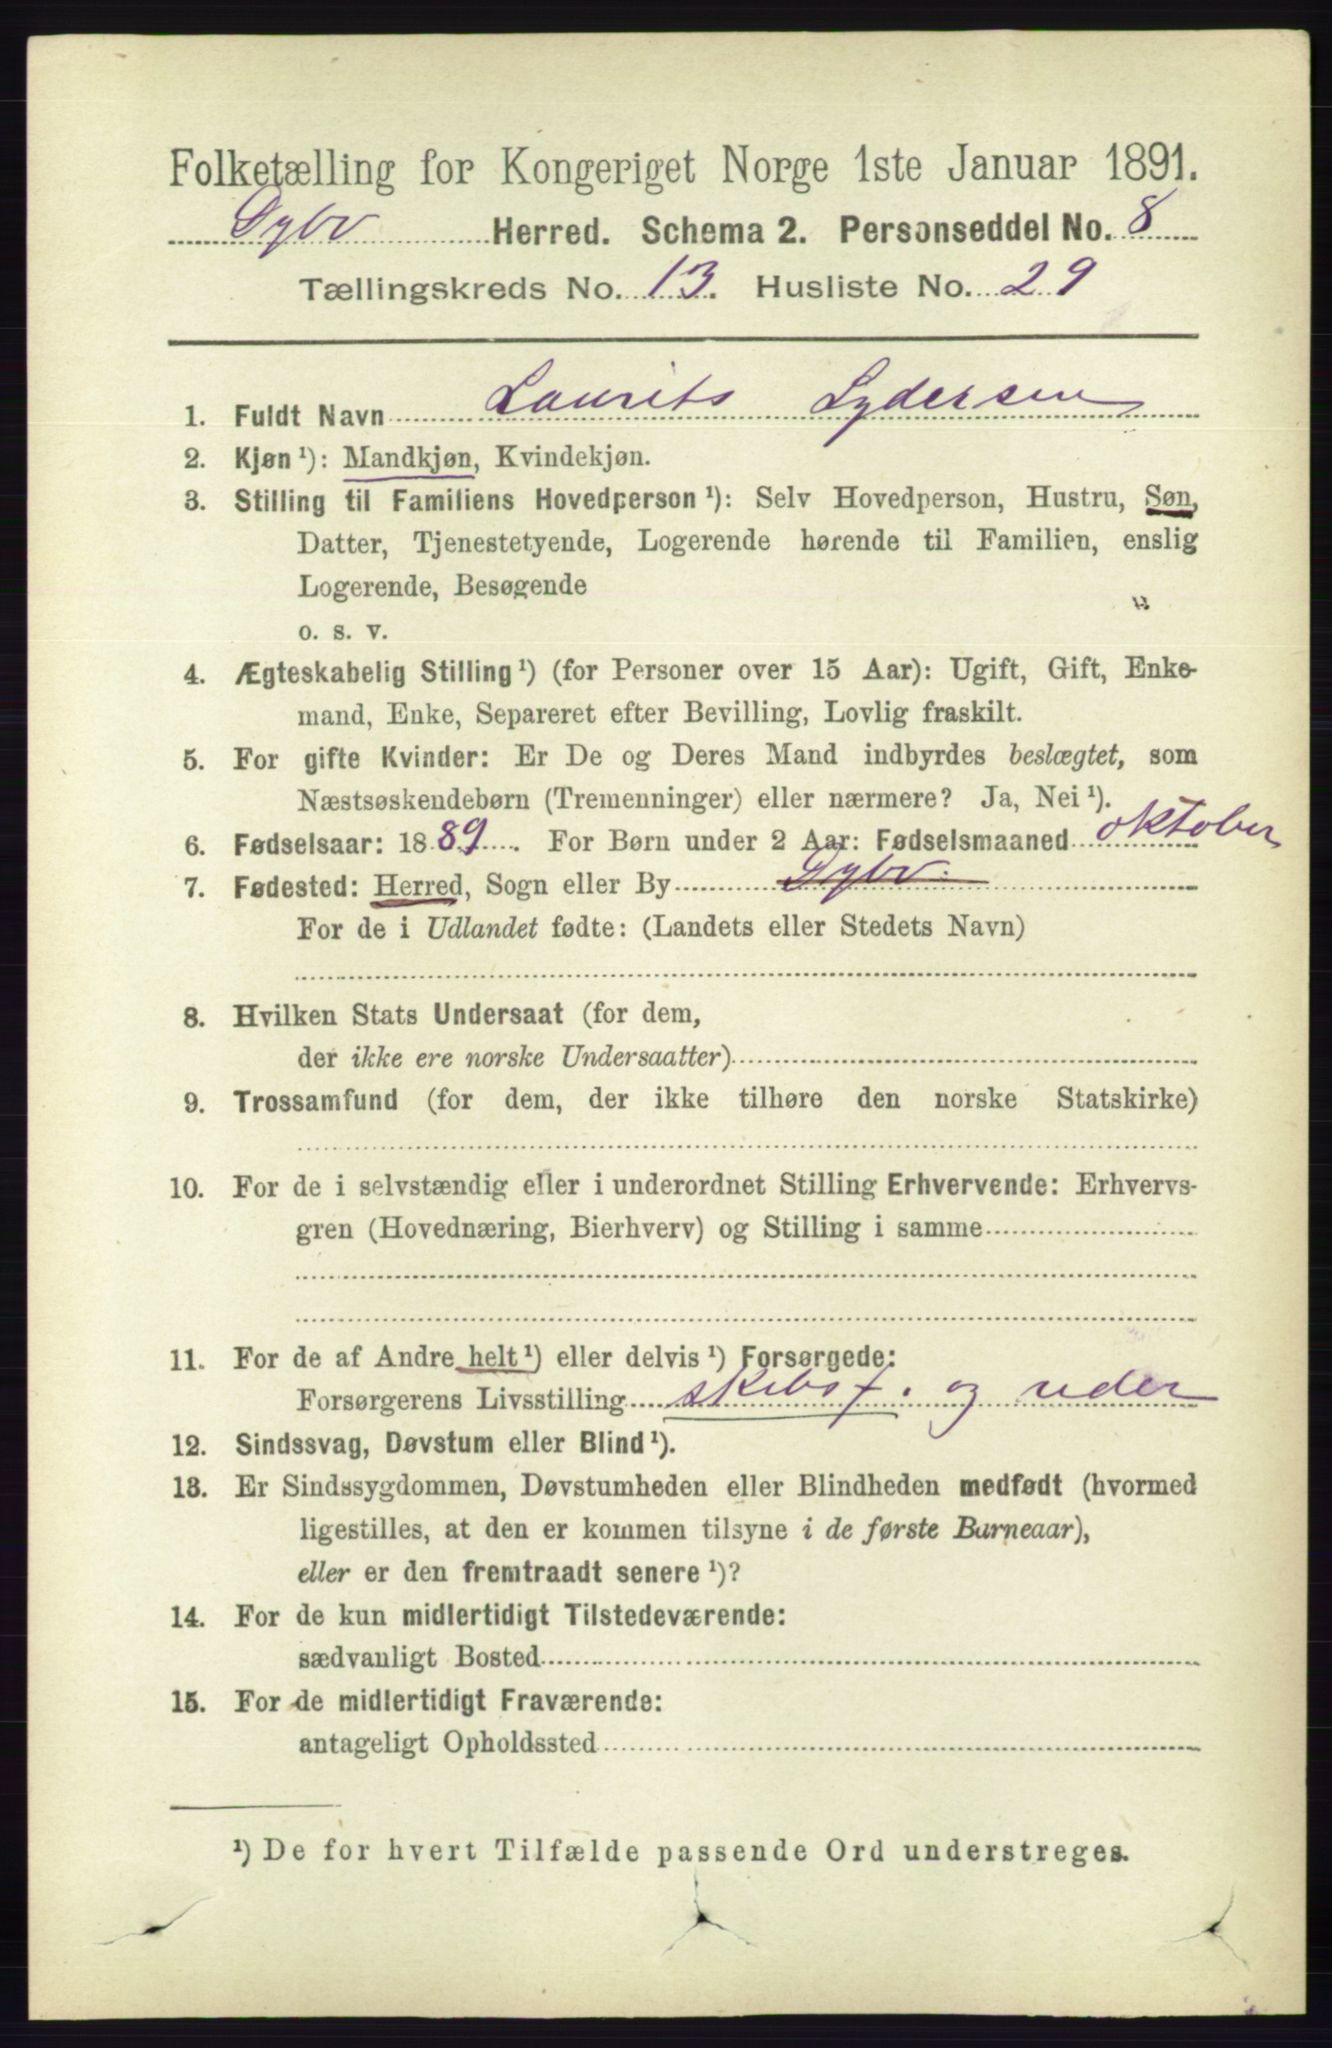 Folketælling for Kongeriget Norge 1ste Januar 1891.
Dybv Herred. Schema 2. Personseddel No. 8
Tællingskreds No. 13. Husliste No. 29
1. Fuldt Navn Laurits Lydersen
2. Kjøn ¹): Mandkjøn, Kvindekjøn.
3. Stilling til Familiens Hovedperson ¹): Selv Hovedperson, Hustru, Søn,
Datter, Tjenestetyende, Logerende hørende til Familien, enslig
Logerende, Besøgende
o. s. v.
4. Ægteskabelig Stilling ¹) (for Personer over 15 Aar): Ugift, Gift, Enke-
mand, Enke, Separeret efter Bevilling, Lovlig fraskilt.
5. For gifte Kvinder: Er De og Deres Mand indbyrdes beslægtet, som
Næstsøskendebørn (Tremenninger) eller nærmere? Ja, Nei ¹).
6. Fødselsaar: 1889. For Børn under 2 Aar: Fødselsmaaned oktober
7. Fødested: Herred, Sogn eller By Dybv.
For de i Udlandet fødte: (Landets eller Stedets Navn)
8. Hvilken Stats Undersaat (for dem,
der ikke ere norske Undersaatter)
9. Trossamfund (for dem, der ikke tilhøre den norske Statskirke)
10. For de i selvstændig eller i underordnet Stilling Erhvervende: Erhvervs-
gren (Hovednæring, Bierhverv) og Stilling i samme
11. For de af Andre helt ¹) eller delvis ¹) Forsørgede:
Forsørgerens Livsstilling skibsf. og reder
12. Sindssvag, Døvstum eller Blind ¹).
13. Er Sindssygdommen, Døvstumheden eller Blindheden medfødt (hvormed
ligestilles, at den er kommen tilsyne i de første Barneaar),
eller er den fremtraadt senere ¹)?
14. For de kun midlertidigt Tilstedeværende:
sædvanligt Bosted
15. For de midlertidigt Fraværende:
antageligt Opholdssted
¹) De for hvert Tilfælde passende Ord understreges.